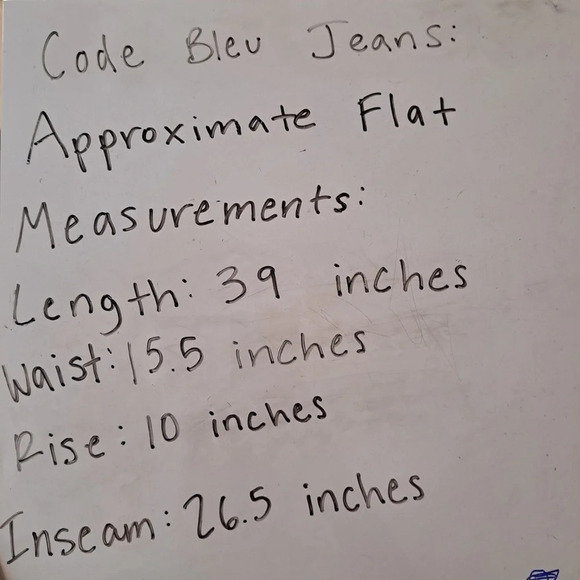 Code Bleu Jeans:
Approximate Flat
Measurements:
Length: 39 inches
Waist: 15.5 inches
Rise: 10 inches
Inseam: 26.5 inches